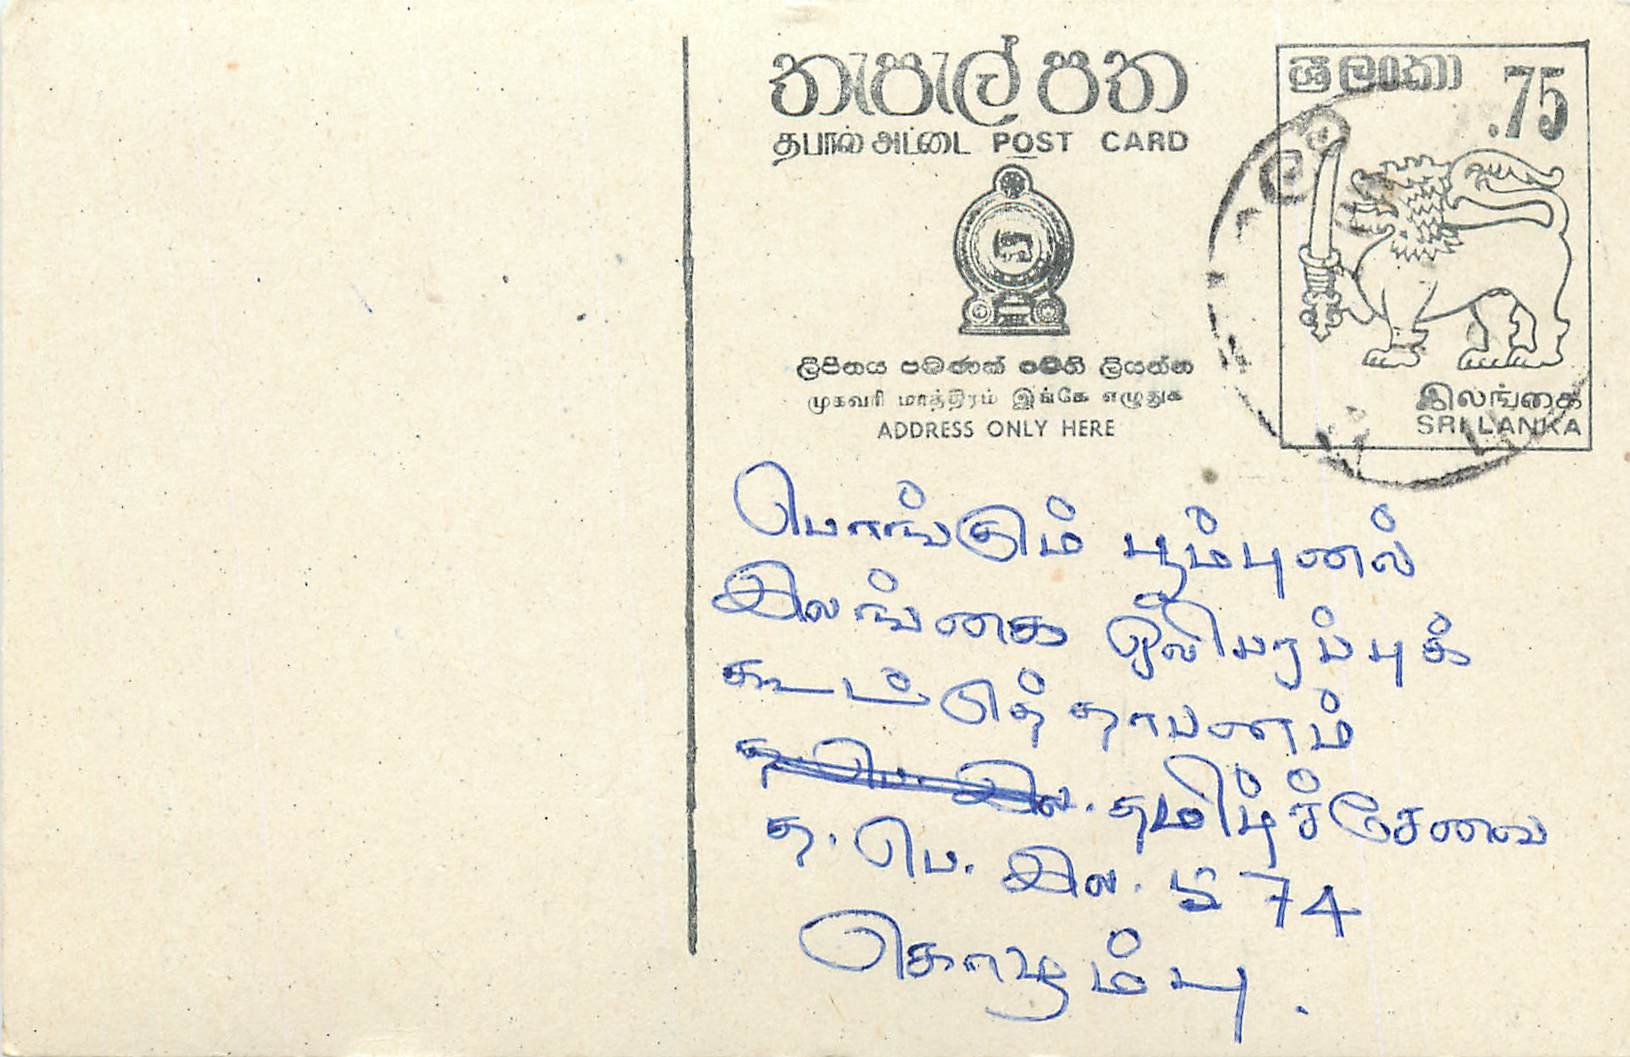 තැපැල් පත
ශ්‍රී ලංකා .75
தபால் அட்டை POST CARD
ලිපිනය පමණක් මෙහි ලියන්න
முகவரி மாத்திரம் இங்கே எழுதுக
ADDRESS ONLY HERE
இலங்கை
SRI LANKA
பொங்கும் பூம்புனல்
இலங்கை ஒலிபரப்புக்
கூட்டுத்தாபனம்
த. பெ. இல. தமிழ்ச்சேவை
த. பெ. இல. 574
கொழும்பு.